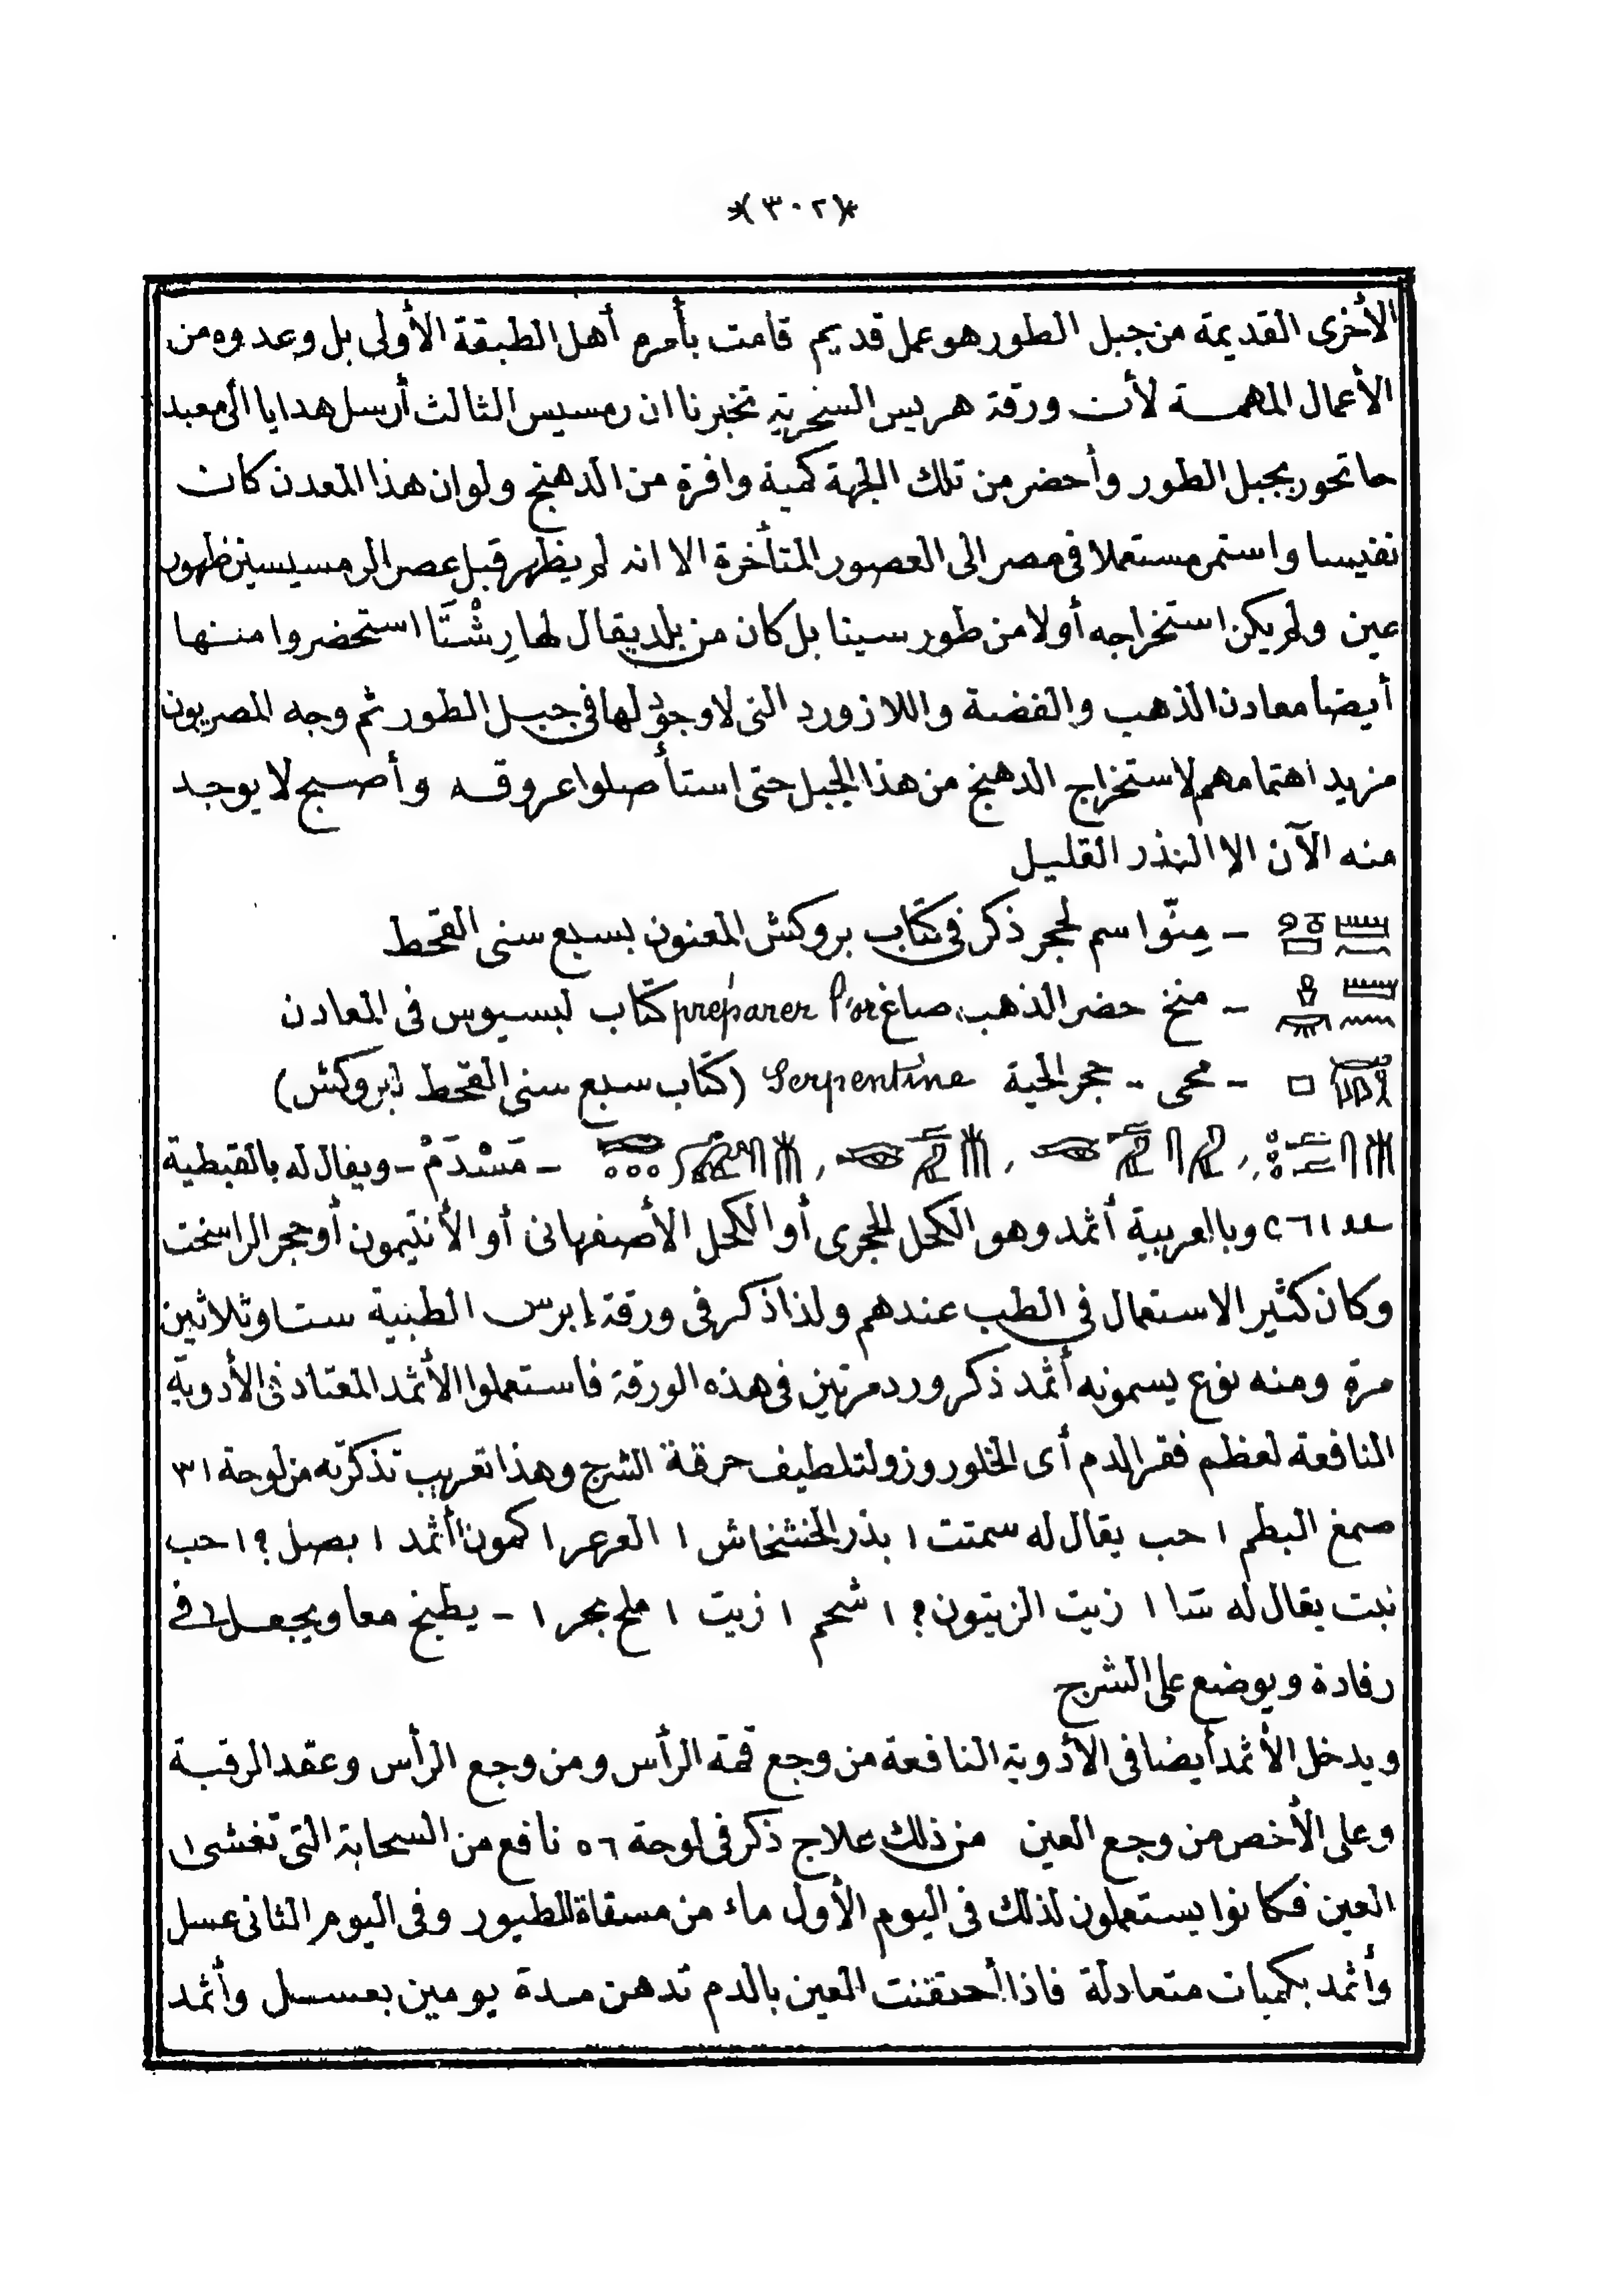 *(٣٠٢)*
الأخرى القديمة من جبل الطور هو عمل قديم قامت بأمره أهل الطبقة الأولى بل وعدوه من
الأعمال المهمة لأن ورقة هريس السحرية تخبرنا ان رمسيس الثالث أرسل هدايا الى معبد
حاتحور بجبل الطور وأحضر من تلك الجهة كمية وافرة من الدهنج ولو ان هذا المعدن كان
نفيسا واستمر مستعملا فى مصر الى العصور المتأخرة الا انه لم يظهر قبل عصر الرمسيسين ظهور
عين ولم يكن استخراجه أولا من طور سينا بل كان من بلد يقال لها رِشْتَا استحضروا منها
أيضا معادن الذهب والفضة واللازورد التى لا وجود لها فى جبل الطور ثم وجه المصريون
مزيد اهتمامهم لاستخراج الدهنج من هذا الجبل حتى استأصلوا عروقه وأصبح لا يوجد
منه الآن الا النذر القليل
– مِنّو اسم لحجر ذكر فى كتاب بروكش المعنون بسبع سنى القحط
– منخ حضر الذهب، صاغ préparer l'or كتاب لبسيوس فى المعادن
– محى – حجر الحية Serpentine (كتاب سبع سنى القحط لبروكش)
– مَسْدَمْ – ويقال له بالقبطية
وبالعربية أثمد وهو الكحل الحجرى أو الكحل الأصفهانى أو الأنتيمون أو حجر الراسخت
وكان كثير الاستعمال فى الطب عندهم ولذا ذكر فى ورقة إبرس الطبية ستا وثلاثين
مرة ومنه نوع يسمونه أثمد ذكر ورد مرتين فى هذه الورقة فاستعملوا الأثمد المعتاد فى الأدوية
النافعة لعظم فقر الدم أى الخلوروز ولتلطيف حرقة الشرج وهذا تعريب تذكرته من لوحة ٣١
صمغ البطم ١ حب يقال له سمتت ١ بذر الخشخاش ١ العرعر ١ كمون ١ أثمد ١ بصل ؟ ١ حب
نبت يقال له شدا ١ زيت الزيتون ؟ ١ شحم ١ زيت ١ ملح بحر ١ – يطبخ معا ويجعل فى
رفادة ويوضع على الشرج
ويدخل الأثمد أيضا فى الأدوية النافعة من وجع قمة الرأس ومن وجع الرأس وعقد الرقبة
وعلى الأخص من وجع العين من ذلك علاج ذكر فى لوحة ٥٦ نافع من السحابة التى تغشى
العين فكانوا يستعملون لذلك فى اليوم الأول ماء من مسقاة للطيور وفى اليوم الثانى عسل
وأثمد بكميات متعادلة فاذا أحتقنت العين بالدم تدهن مدة يومين بعسل وأثمد